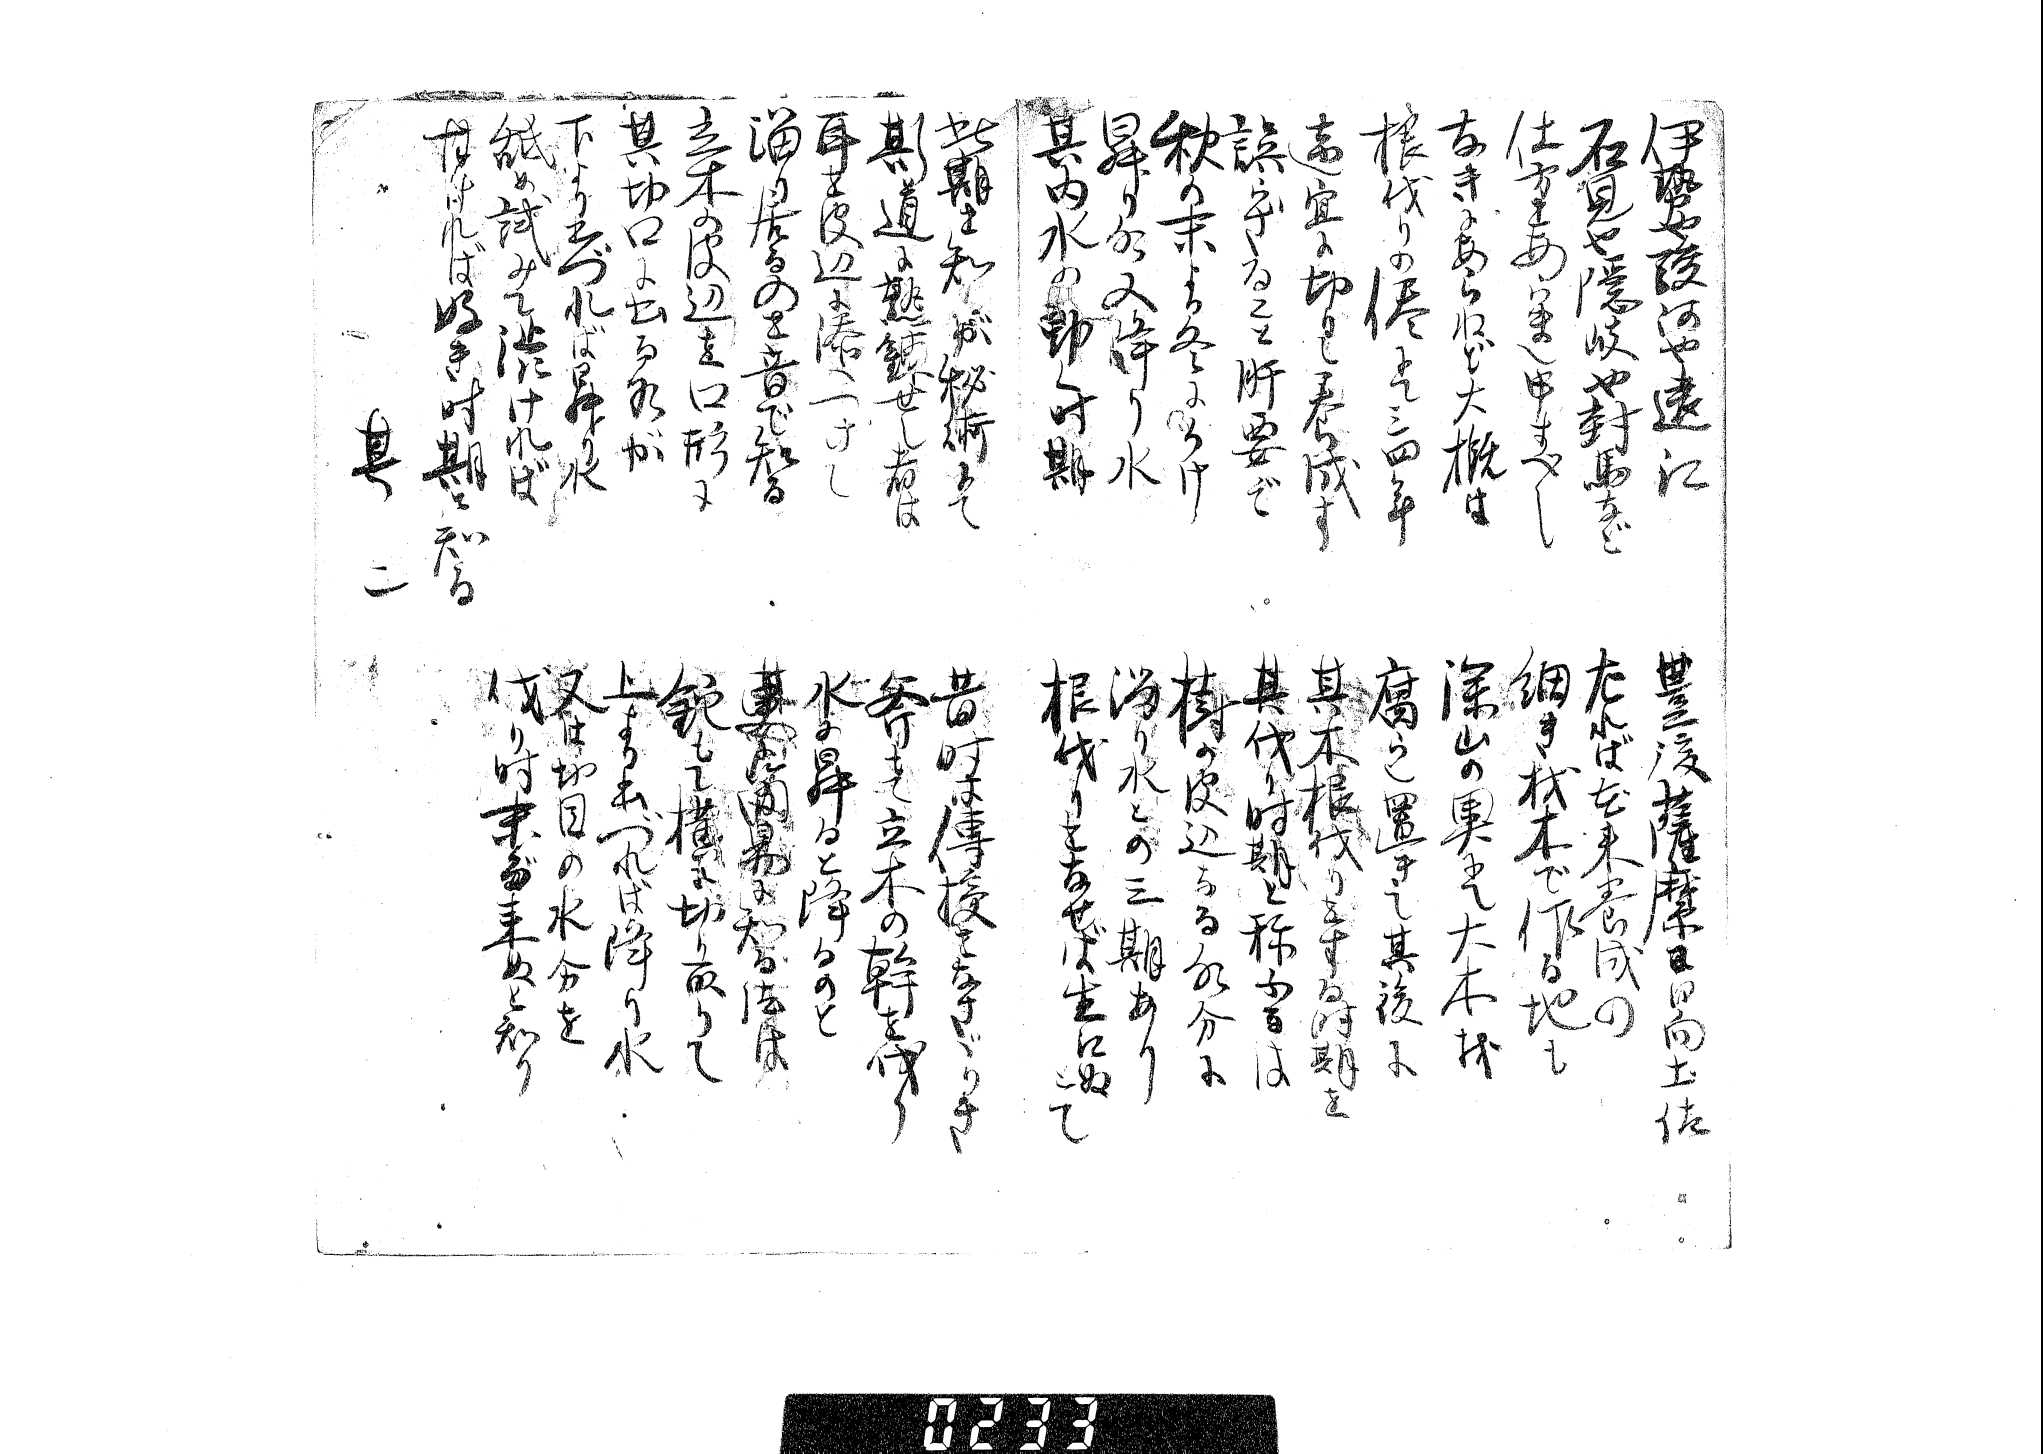 伊勢や駿河や遠江
豊後薩摩日向土佐
石見や隠岐や對馬など
されば本来養成の
仕方を申すべし
細き材木で作る地も
なきにあらねど大概は
深山の奥にて大木を
根伐りの儘にて三四年
腐らし置きて其後に
適宜に切りて養成す
其木根伐りをする時期を
誤らざること肝要で
其伐り時期と称ふるは
秋の末より冬にかけ
樹の皮辺なる水分に
昇り水又降り水
溜り水との三期あり
其内水の動く時期
根伐りをなせば生にぬとて
此期を知るが秘術にて
昔時は傳授をなさざりき
斯道に熟錬せし者は
斧もて立木の幹を伐り
耳を皮辺に添へつけし
水の昇ると降るのと
溜り居るのを音で知る
其を簡易に知る法は
立木の皮辺を口形に
鉈もて横に切り取りて
其切口に出る水が
上より出づれば降り水
下より出づれば昇り水
又は切目の水分を
舐め試みて渋ければ
伐り時未だ来ぬと知り
甘ければ好き時期と知る
其二
0233